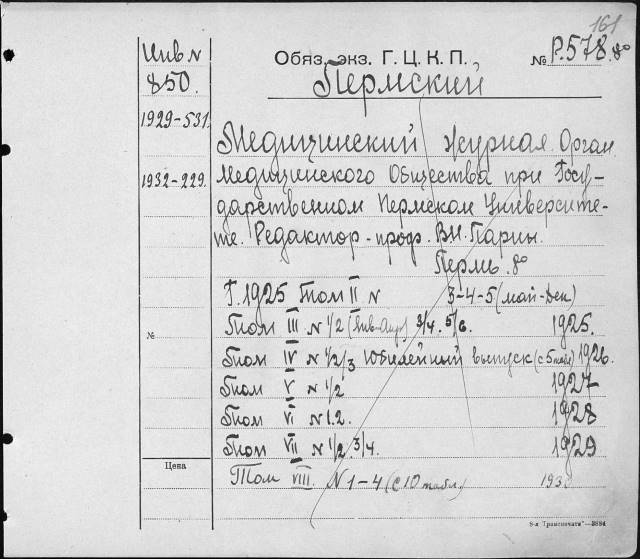 161
Инв N
850.
1929-531.
1932-229.
№
Цена
Обяз. экз. Г. Ц. К. П.
№ Р.578. 8°
Пермский
Медицинский журнал. Орган
Медицинского Общества при Госу-
дарственном Пермском Университе-
те. Редактор-проф. В.Н. Парин.
Пермь. 8°
Г. 1925 Том II N 3-4-5 (май-дек)
Том III N 1/2 (Янв-Апр) 3/4. 5/6. 1925.
Том IV N 1/2/3 Юбилейный выпуск (с 5 табл) 1926.
Том V N 1/2 1927
Том VI N 1.2. 1928
Том VII N 1/2. 3/4. 1929
Том VIII. N 1-4 (с 10 табл.) 193
8-я „Транспечати"—3884